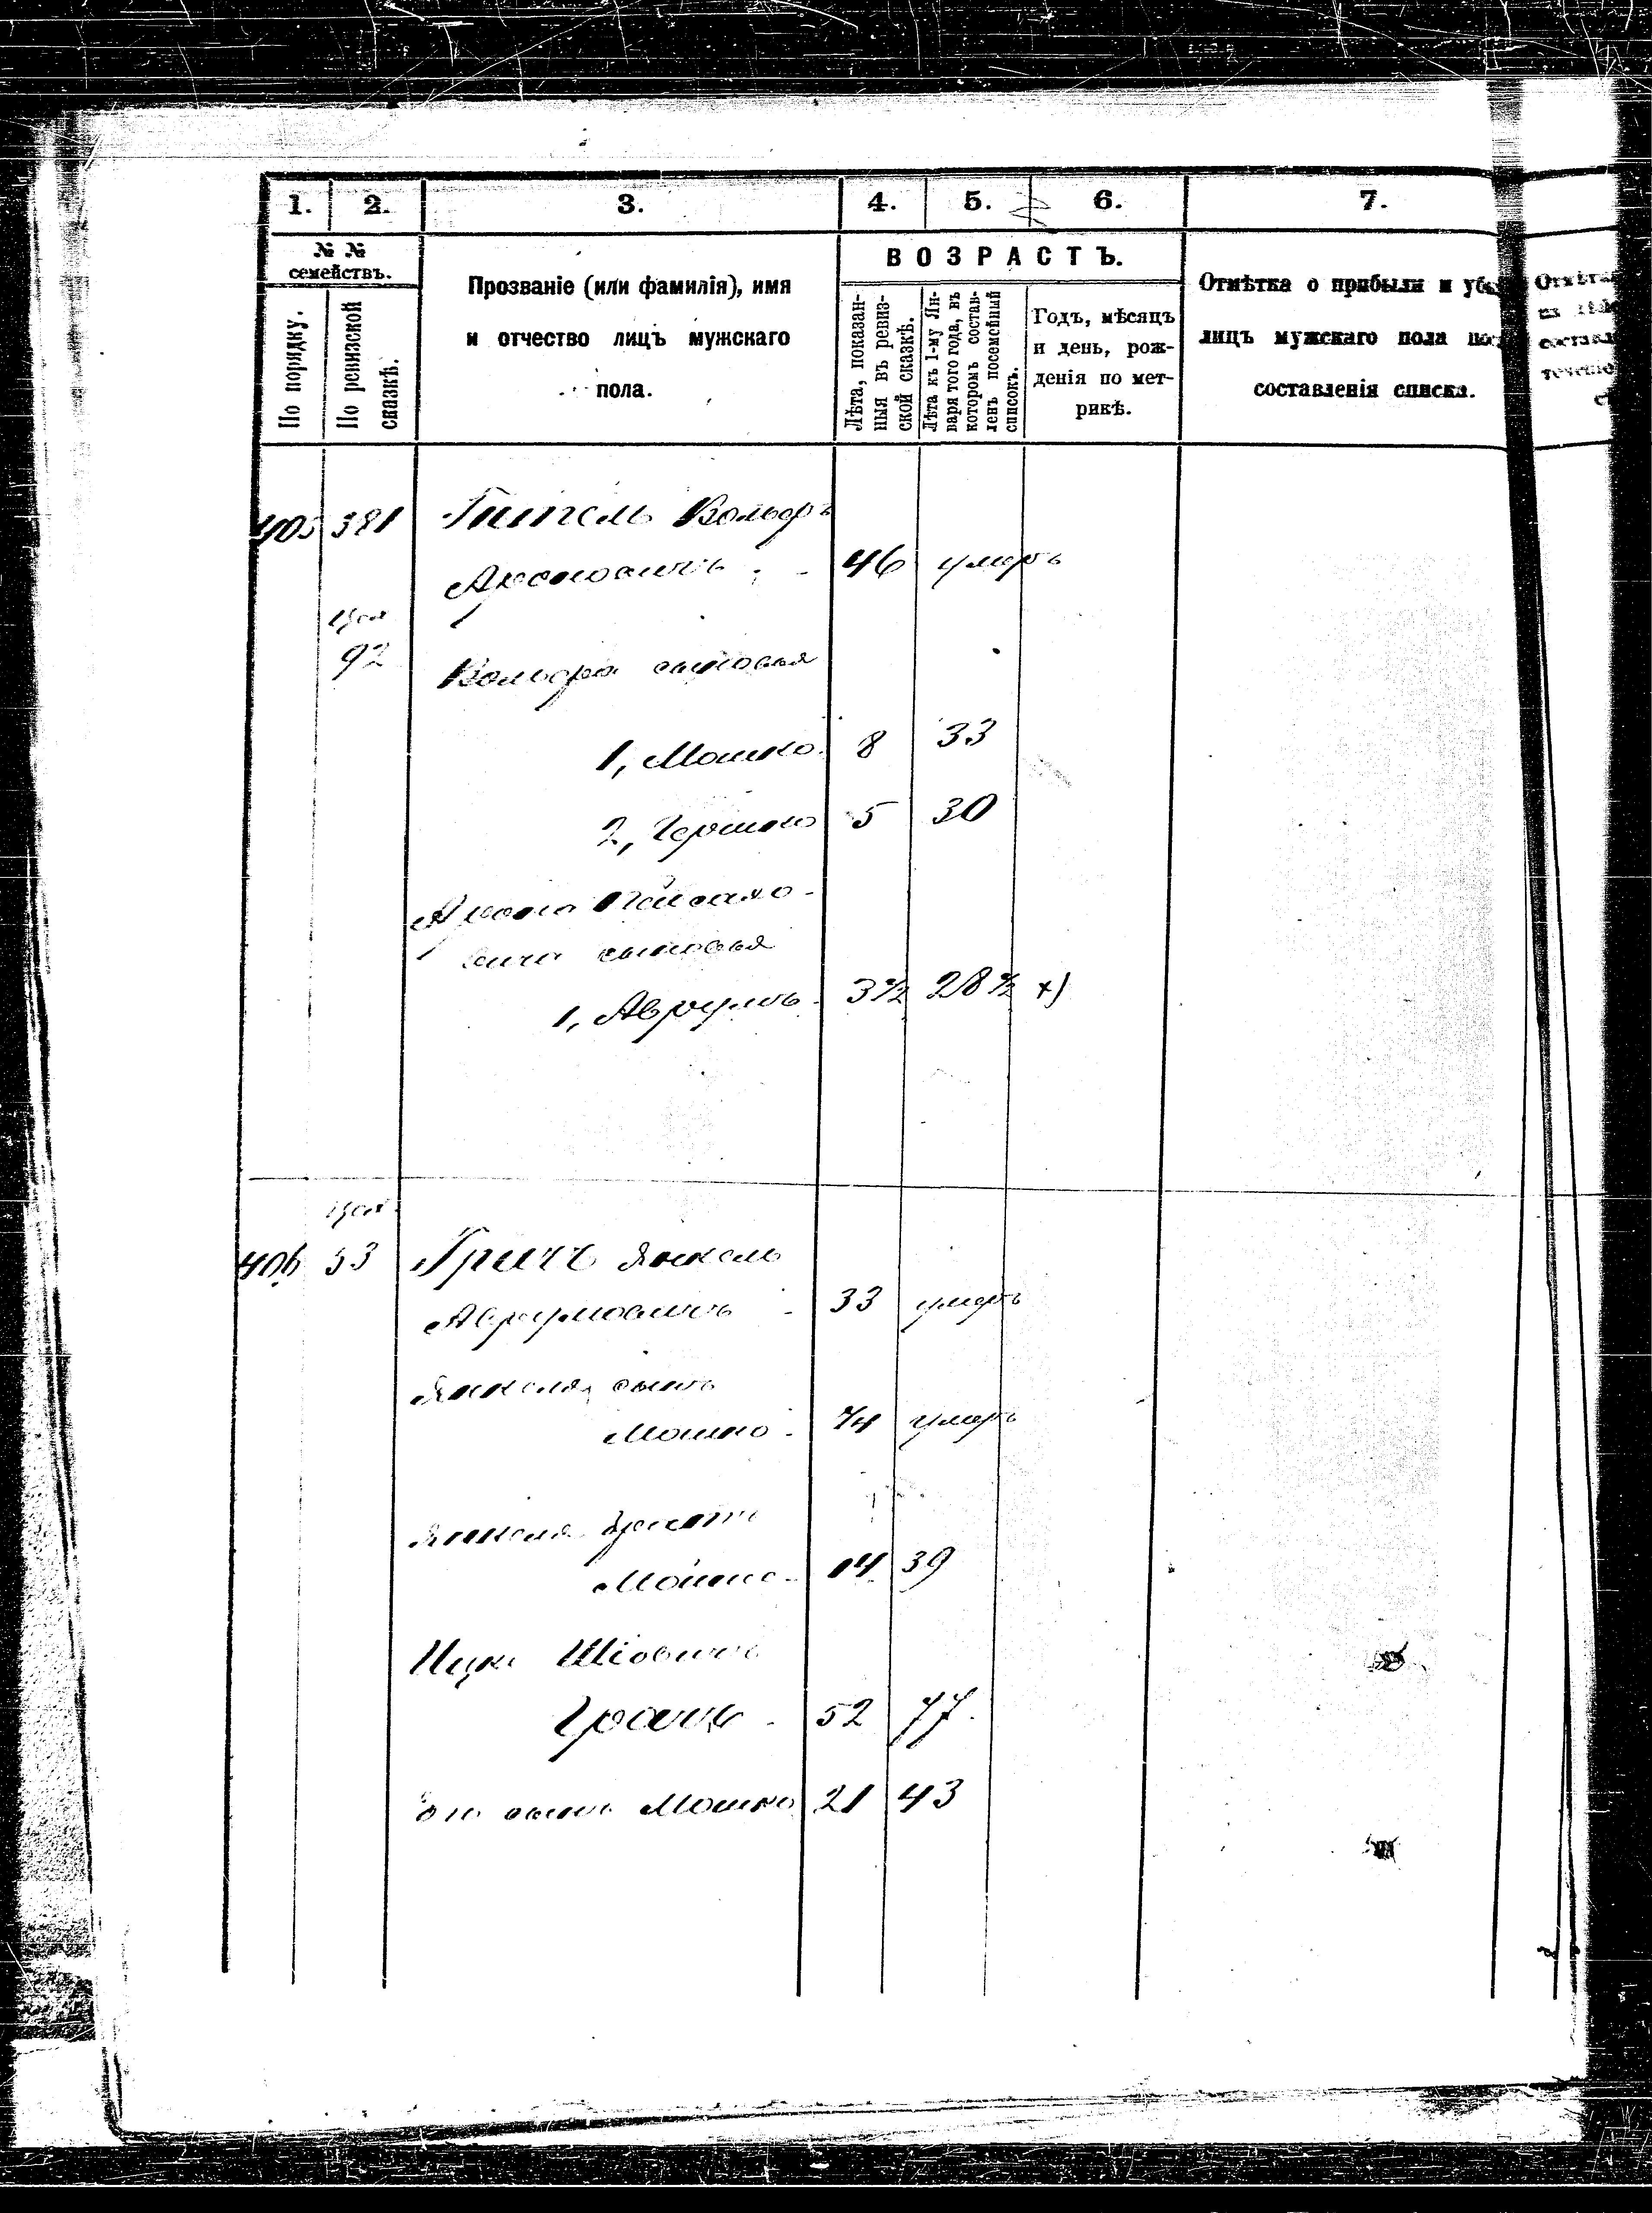 1. 2. 3. 4. 5. 6. 7.
№ №
семействъ.
По порядку.
По ревизской
сказкѣ.
Прозваніе (или фамилія), имя
и отчество лицъ мужскаго
пола.
ВОЗРАСТЪ.
Лѣта, показан-
ныя въ ревиз-
ской сказкѣ.
Лѣта къ 1-му Ян-
варя того года, въ
которомъ состав-
ленъ посемейный
списокъ.
Годъ, мѣсяцъ
и день, рож-
денія по мет-
рикѣ.
Отмѣтка о прибыли и убы
лицъ мужскаго пола пос
составленія списка.
405 381 Гительъ Вольфъ
Ароновичъ 46 умеръ
92 Вольфа сыновья
1, Мошко 8 33
2, Гершко 5 30
Арона Пейсахо-
вича сыновья
1, Аврумъ 3½ 28½ х)
406 53 Гричъ Янкель
Аврумовичъ 33 умеръ
Янкеля сынъ
Мошко ¼ умеръ
Янкеля братъ
Мошко 14 39
Ицко Шіовичъ
Грачъ 52 77
Его сынъ Мошко 21 43